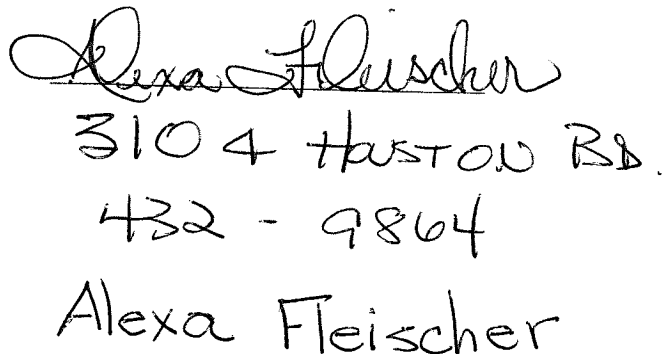 Alexa Fleischer
3104 Houston BD.
432 - 9864
Alexa Fleischer